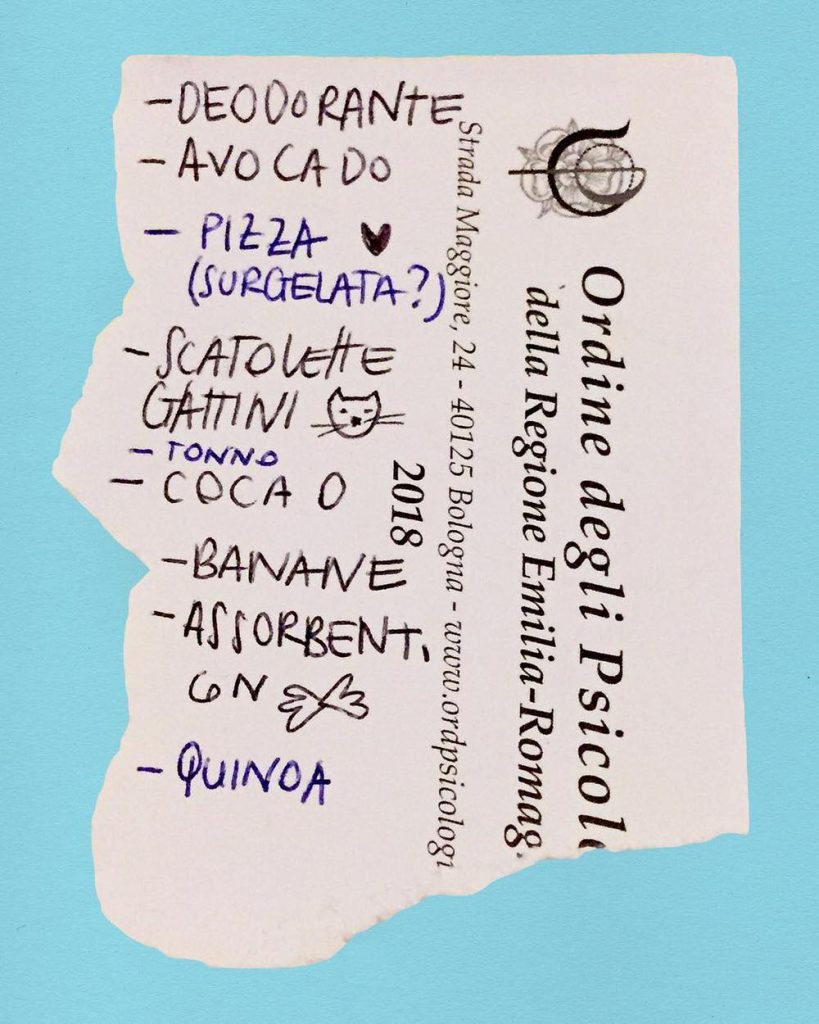 -DEODORANTE
-AVOCADO
- PIZZA
(SURGELATA?)
-SCATOLETTE
GATTINI
-TONNO
- COCA O
-BANANE
-ASSORBENTI
CON
- QUINOA
Ordine degli Psicol
della Regione Emilia-Romag
Strada Maggiore, 24 - 40125 Bologna - www.ordpsicologi
2018